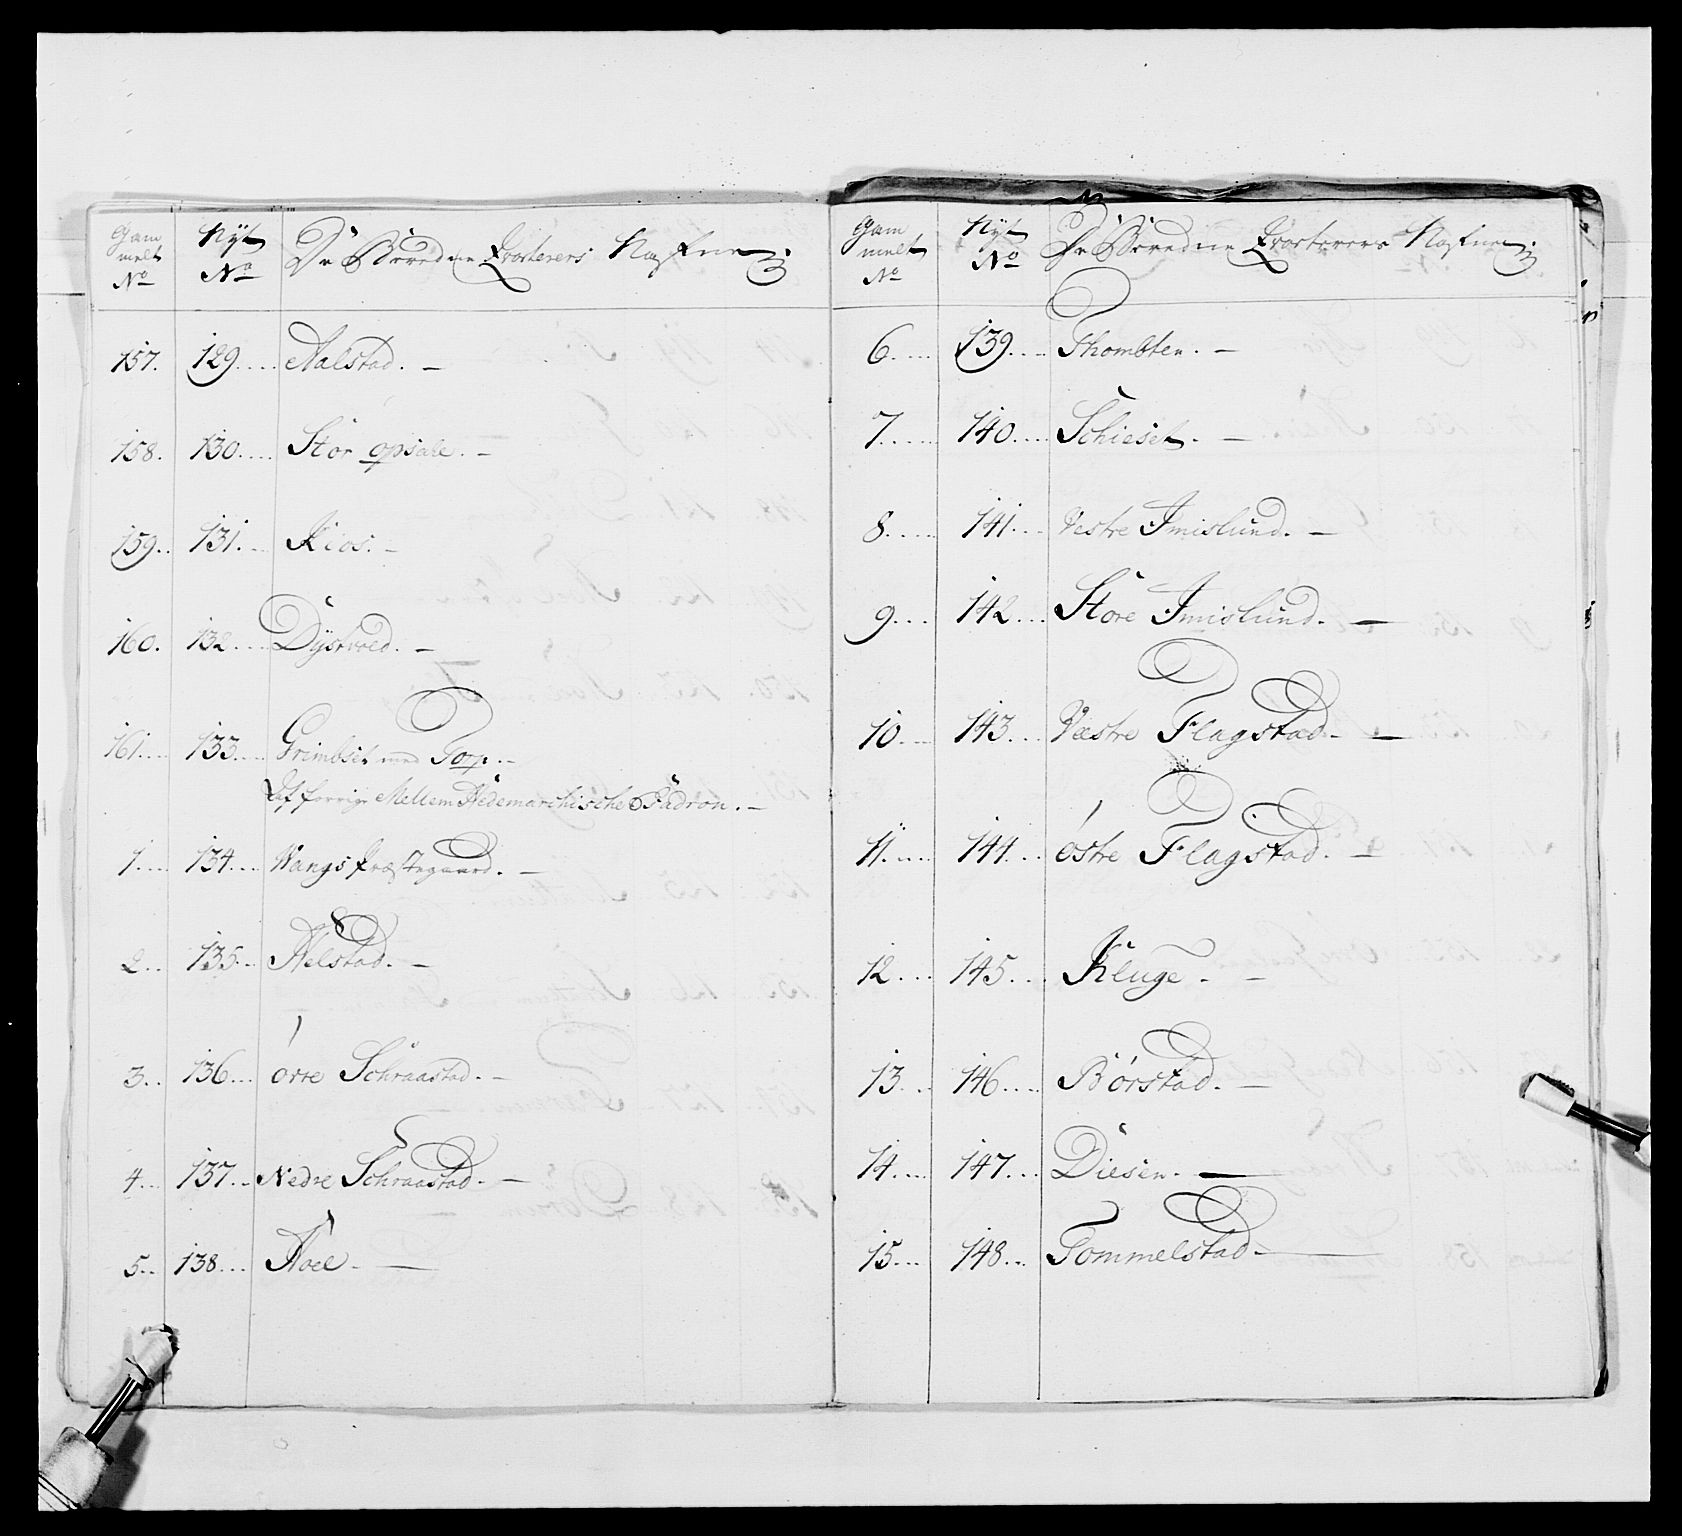 Gam Nÿt De Beredne Qvarterers Nafne
melt No
No
157. 129. Aalstad.
158. 130. Stor opsale.
159. 131. Kios.
160. 132. Dÿstvold.
161. 133. Grimbset med Torp.
Af forrige Mellem Hedemarchische Esqvadron.
1. 134. Wangs Præstegaard.
2. 135. Helstad.
3. 136. øvre Schraastad.
4. 137. Nedre Schraastad.
5. 138. Hoel
Gam Nÿt De Beredne Qvarterers Nafne
melt No
No
6. 139. Thombten.
7. 140. Schieset.
8. 141. Vestre Imislund.
9. 142. Store Imislund.
10. 143. Væstre Flagstad
11. 144. østre Flagstad.
12. 145. Kluge
13. 146. Børstad.
14. 147. Diesen.
15. 148. Tommelstad